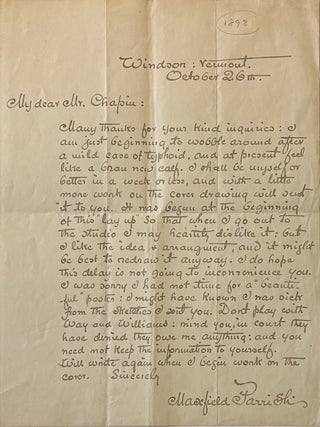 1898
Windsor : Vermont.
October 26th.
My dear Mr. Chapin :
Many thanks for your kind inquiries : I
am just beginning to wobble around after
a mild case of typhoid, and at present feel
like a bran new calf. I shall be myself or
better in a week or less, and with a little
more work on the cover drawing will send
it to you. It was begun at the beginning
of this "lay up" so that when I go out to
the studio I may heartily dislike it : but
I like the idea & arrangement, and it might
be best to redraw it anyway. I do hope
this delay is not going to inconvenience you.
I was sorry I had not time for a "beauti-
ful" poster : I might have known I was sick
from the sketches I sent you. Don't play with
Way and Williams : mind you, in court they
have denied they owe me anything : and you
need not keep the information to yourself.
Will write again when I begin work on the
cover. Sincerely
Maxfield Parrish